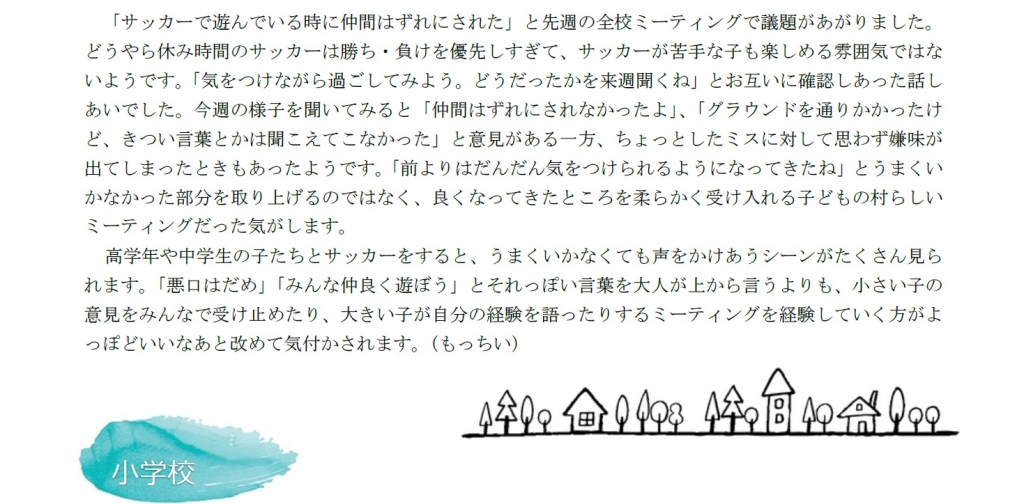 「サッカーで遊んでいる時に仲間はずれにされた」と先週の全校ミーティングで議題があがりました。
どうやら休み時間のサッカーは勝ち・負けを優先しすぎて、サッカーが苦手な子も楽しめる雰囲気ではな
いようです。「気をつけながら過ごしてみよう。どうだったかを来週聞くね」とお互いに確認しあった話し
あいでした。今週の様子を聞いてみると「仲間はずれにされなかったよ」、「グラウンドを通りかかったけ
ど、きつい言葉とかは聞こえてこなかった」と意見がある一方、ちょっとしたミスに対して思わず嫌味が
出てしまったときもあったようです。「前よりはだんだん気をつけられるようになってきたね」とうまくい
かなかった部分を取り上げるのではなく、良くなってきたところを柔らかく受け入れる子どもの村らしい
ミーティングだった気がします。
高学年や中学生の子たちとサッカーをすると、うまくいかなくても声をかけあうシーンがたくさん見ら
れます。「悪口はだめ」「みんな仲良く遊ぼう」とそれっぽい言葉を大人が上から言うよりも、小さい子の
意見をみんなで受け止めたり、大きい子が自分の経験を語ったりするミーティングを経験していく方がよ
っぽどいいなあと改めて気付かされます。（もっちい）
小学校